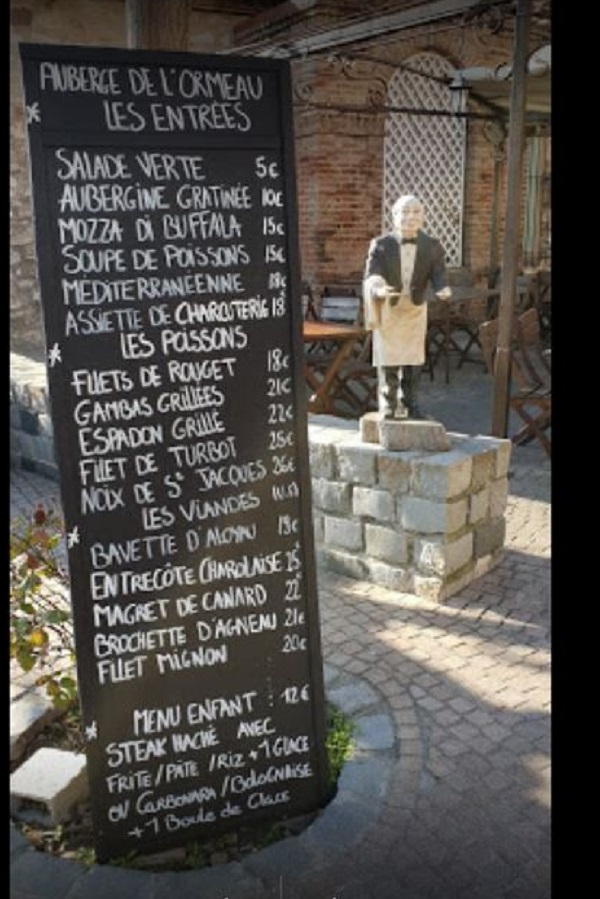 AUBERGE DE L'ORMEAU
* LES ENTRÉES
SALADE VERTE 5€
AUBERGINE GRATINÉE 10€
MOZZA DI BUFFALA 15€
SOUPE DE POISSONS 15€
MÉDITERRANÉENNE 18€
ASSIETTE DE CHARCUTERIE 18
* LES POISSONS
FILETS DE ROUGET 18€
GAMBAS GRILLÉES 21€
ESPADON GRILLÉ 22€
FILET DE TURBOT 25€
NOIX DE St JACQUES 26€
* LES VIANDES
BAVETTE D'ALOYAU 19€
ENTRECÔTE CHAROLAISE 25
MAGRET DE CANARD 22
BROCHETTE D'AGNEAU 21€
FILET MIGNON 20€
* MENU ENFANT : 12€
STEAK HACHÉ AVEC
FRITE/PÂTE /RIZ +1 GLACE
OU CARBONARA /BOLOGNAISE
+1 Boule de Glace